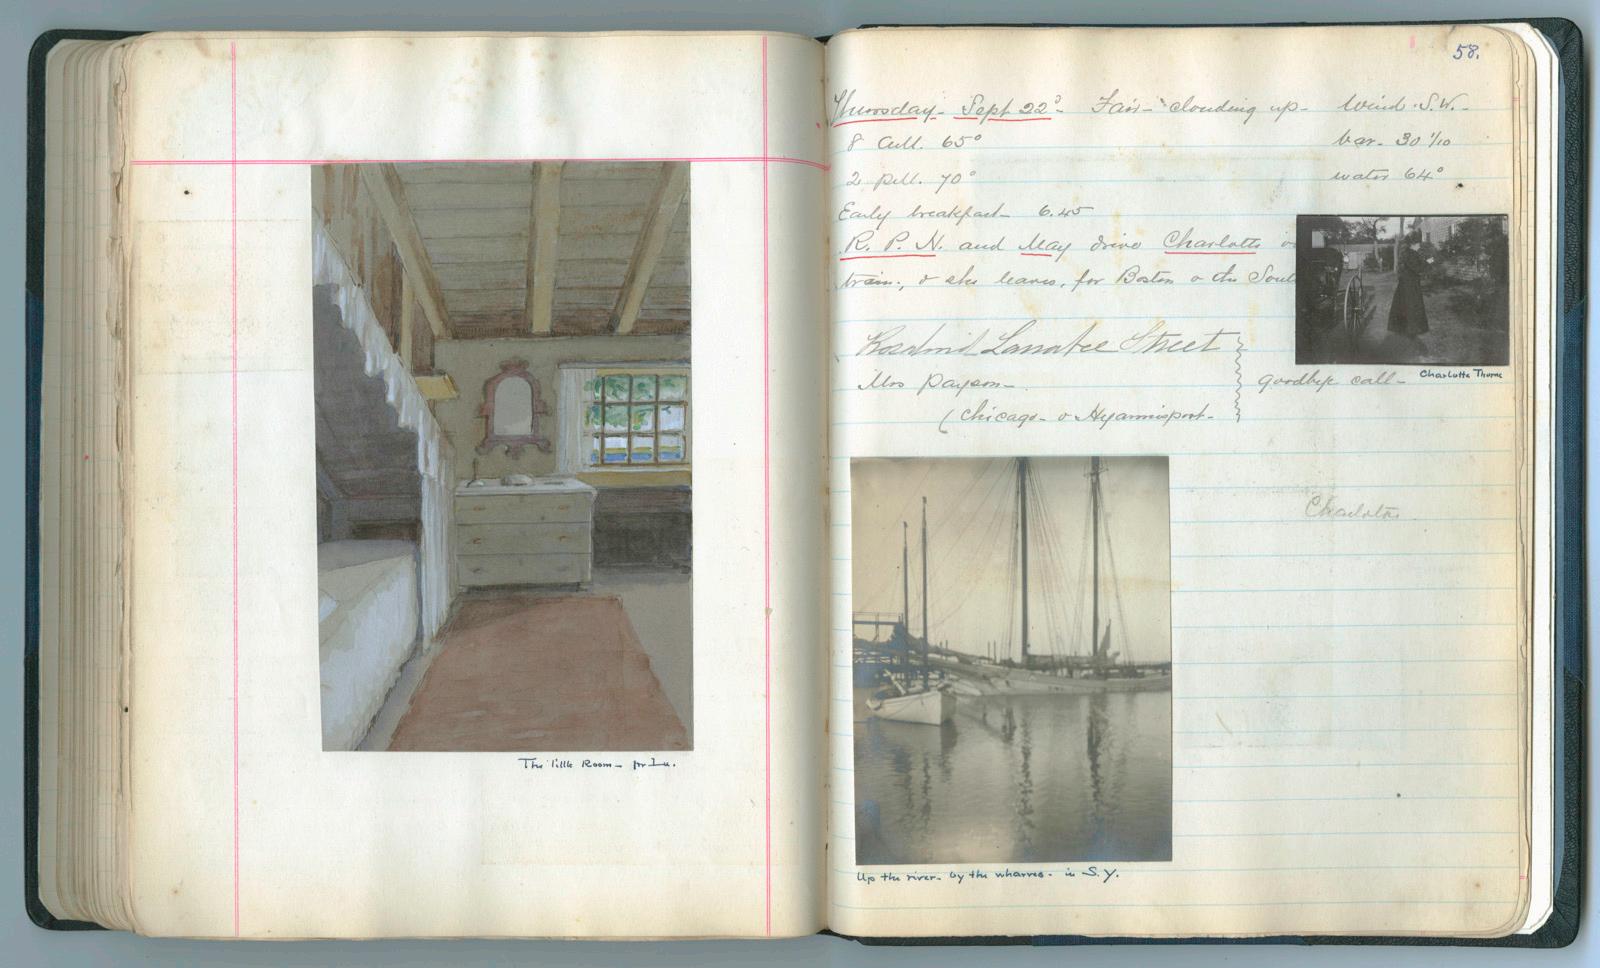 The little Room – for Lu.
58.
Thursday – Sept 22° – Fair – clouding up – Wind. S.W. –
8 A.M. 65°
bar. 30 1/10
2 P.M. 70°
water 64°
Early breakfast – 6.45
R. P. N. and May drive Charlotte
train, & she leaves, for Boston & the
Charlotte Thorne
Rosamond Street
Mrs Payson –
Goodbye call –
(Chicago – & Hyannisport –
Charlotte
Up the river – by the wharves – in S.Y.